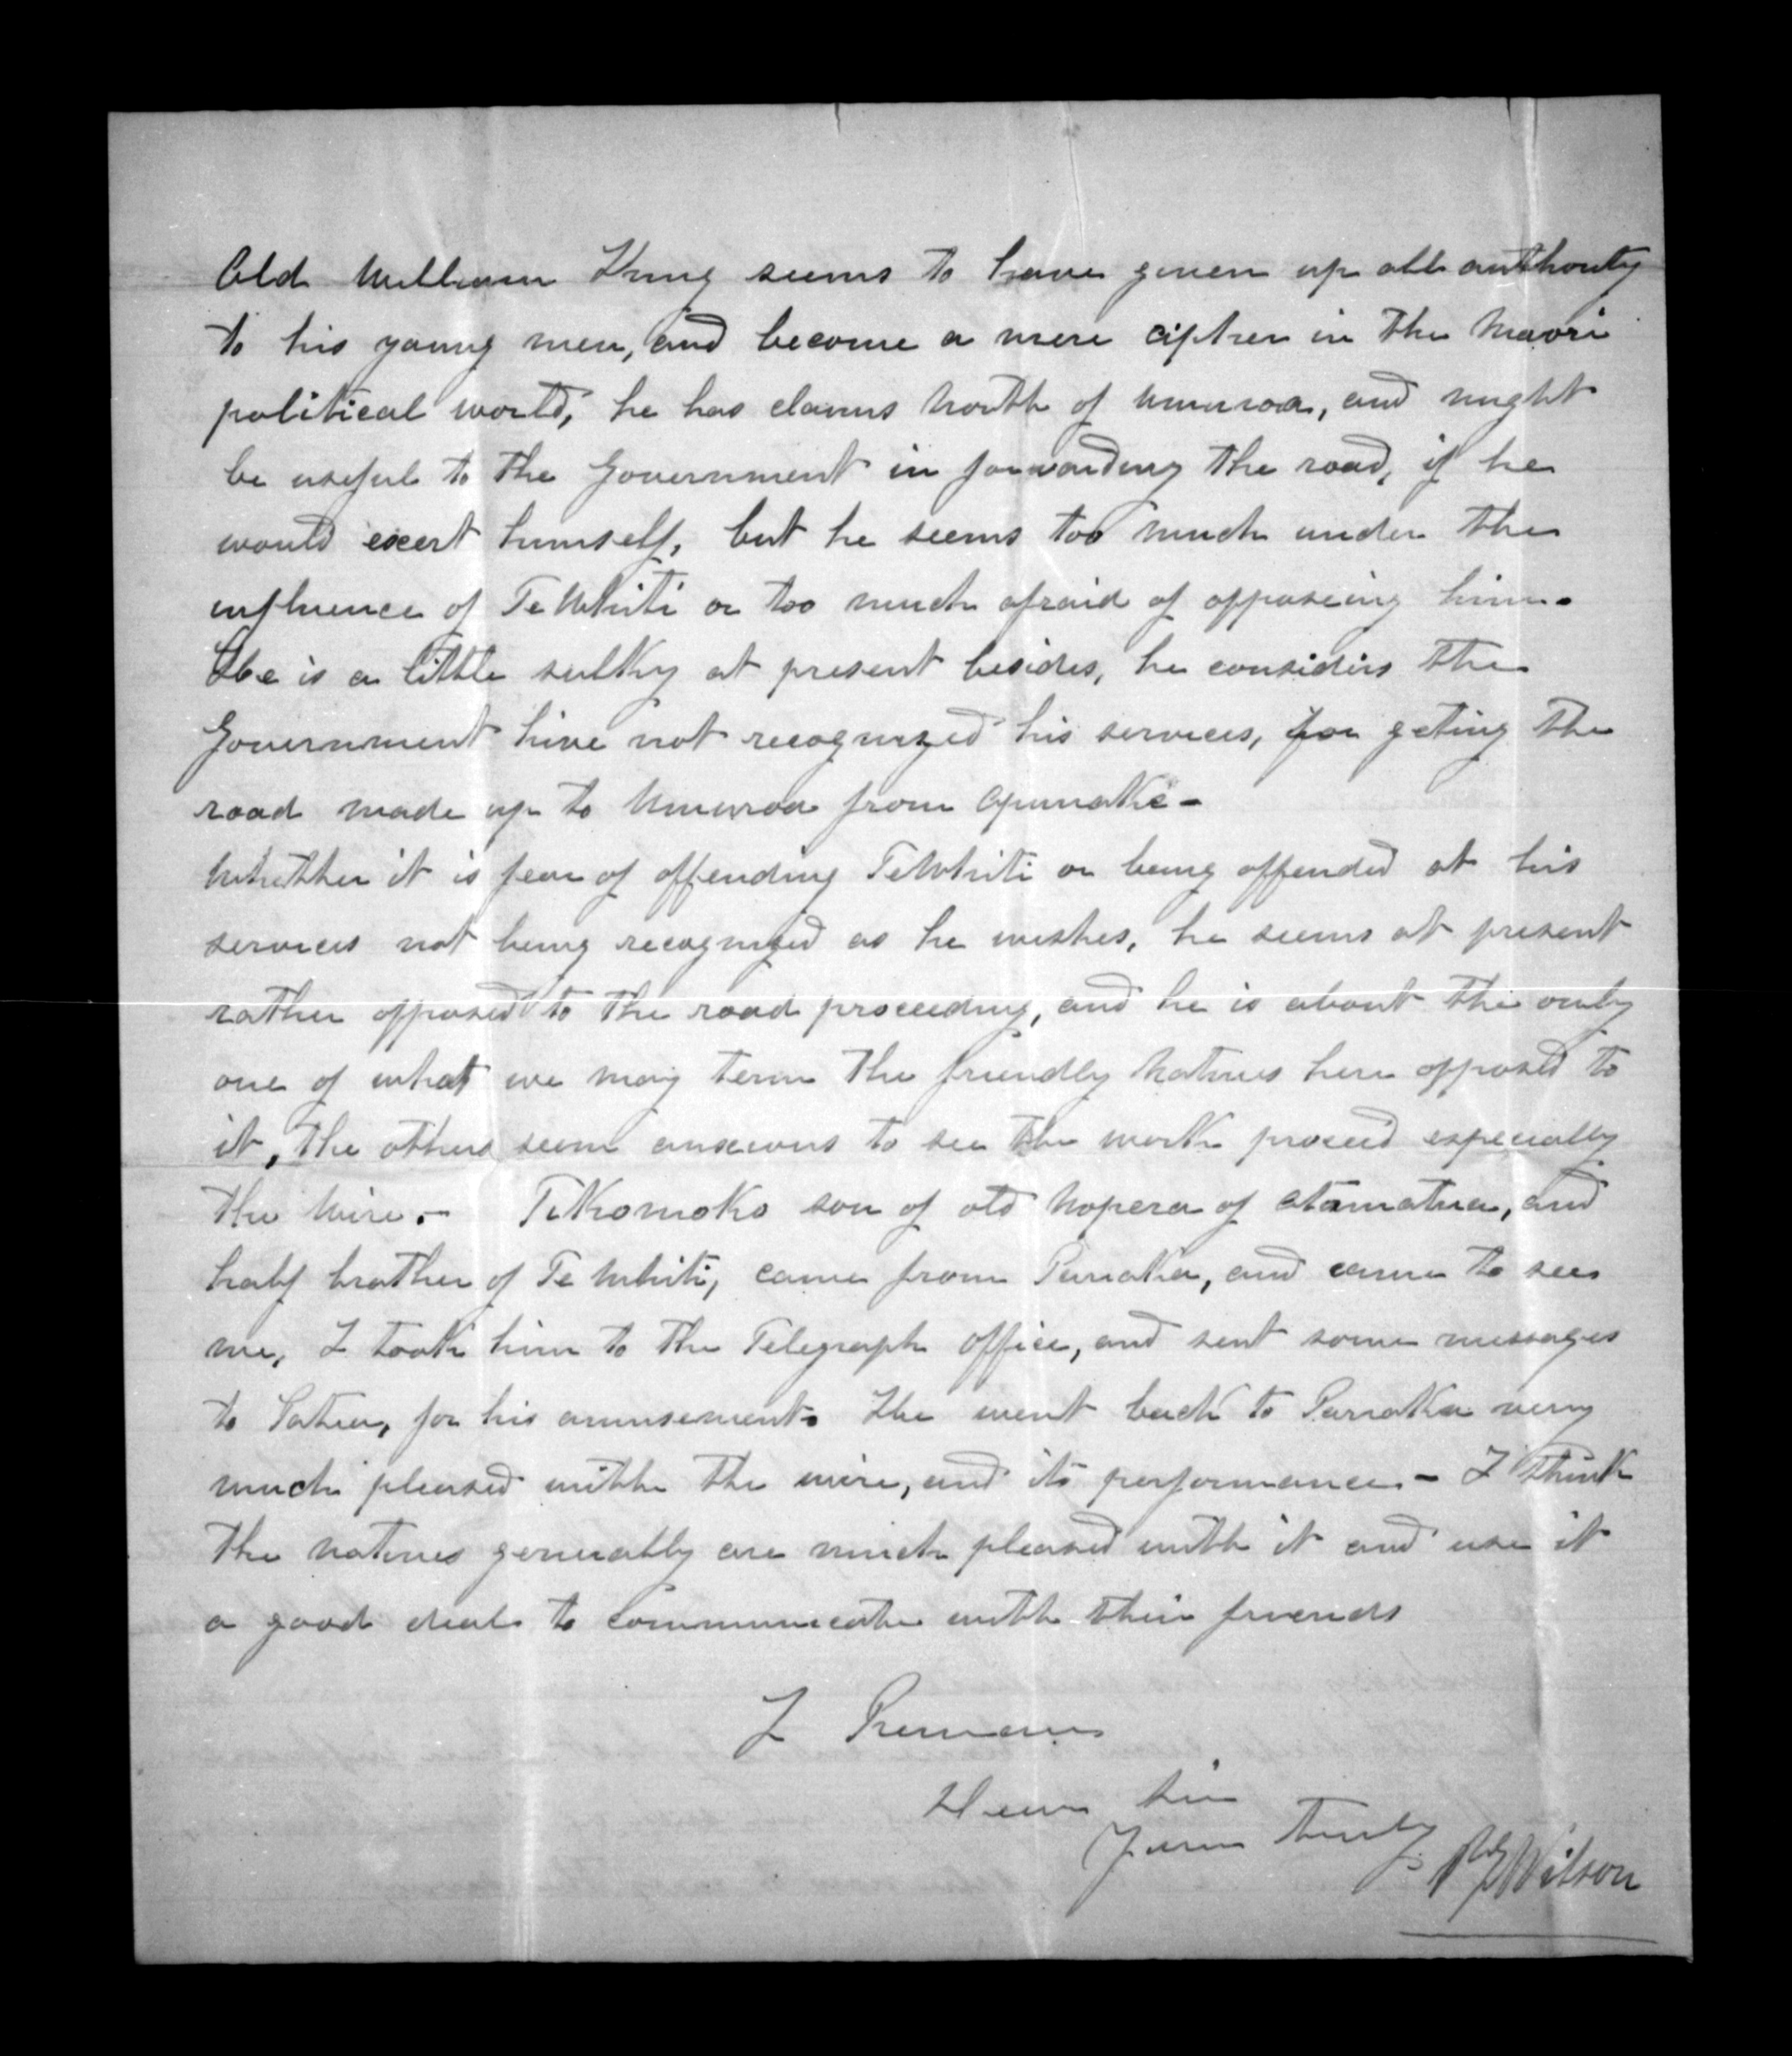 Old William King seems to have given up all authority
to his young men, and become a mere cipher in the Maori
political world, he has claims North of Umuroa, and might
be useful to the Government in forwarding the road, if he
would exert himself, but he seems too much under the
influence of Te Whiti or too much afraid of opposeing him.
He is a little sulky at present besides, he considers the
Government have not recognized his services, for geting the
road made up to Umuroa from Opunake -
Whether it is fear of offending Te Whiti or being offended at his
services not being recognized as he wishes, he seems at present
rather opposed to the road proceeding, and he is about the only
one of what we may term the friendly Natives here opposed to
it, the others seem anxious to see the work proceed especially
the Wire. - TeKomoko son of old Nopera of Otamatua, and
half brother of Te Whiti, came from Parraka, and came to see
me, I took him to the Telegraph Office, and sent some messages
to Patea, for his amusement. He went back to Parraka very
much pleased with the wire, and its performance. - I think
the natives generally are much pleased with it and use it
a good deal to communicate with their friends
I Remain
Dear Sir
Yours truly
Wilson